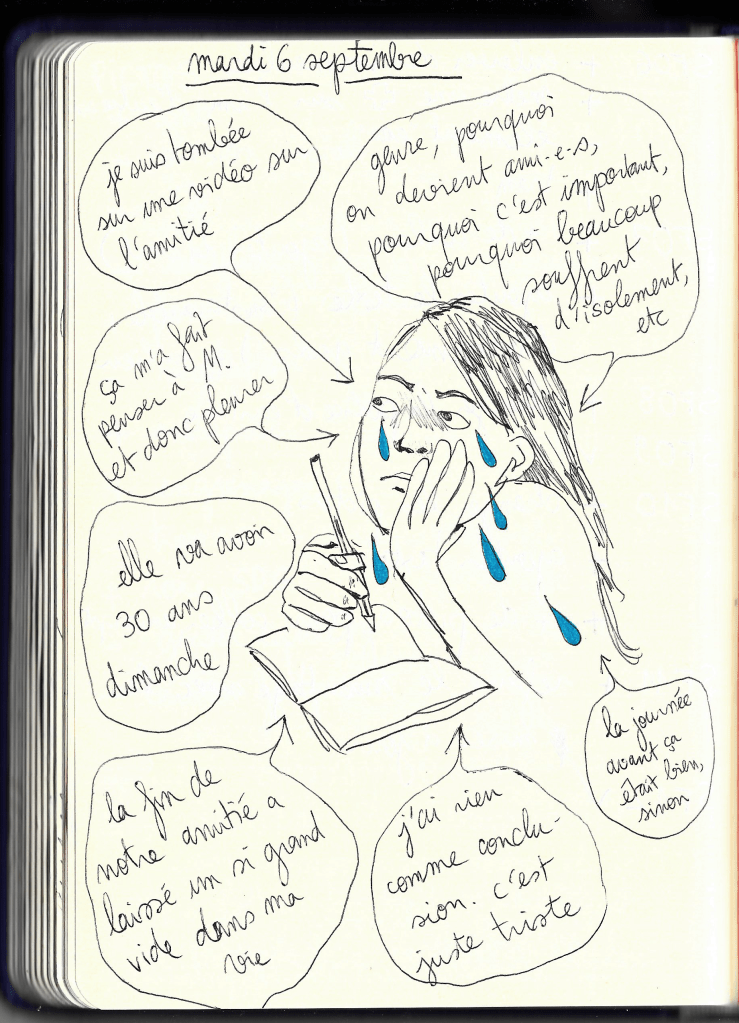 mardi 6 septembre
je suis tombée
sur une vidéo sur
l'amitié
genre, pourquoi
on devient ami-e-s,
pourquoi c'est important,
pourquoi beaucoup
souffrent
d'isolement,
etc
ça m'a fait
penser à M.
et donc pleurer
elle va avoir
30 ans
dimanche
la journée
avant ça
était bien,
sinon
la fin de
notre amitié a
laissé un si grand
vide dans ma
vie
j'ai rien
comme conclu-
sion. c'est
juste triste